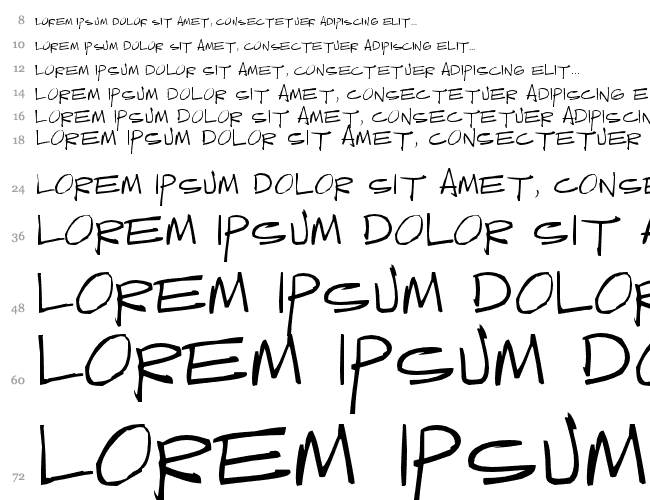 8 LOREM IPSUM DOLOR SIT AMET, CONSECTETUER ADIPISCING ELIT...
10 LOREM IPSUM DOLOR SIT AMET, CONSECTETUER ADIPISCING ELIT...
12 LOREM IPSUM DOLOR SIT AMET, CONSECTETUER ADIPISCING ELIT...
14 LOREM IPSUM DOLOR SIT AMET, CONSECTETUER ADIPISCING E
16 LOREM IPSUM DOLOR SIT AMET, CONSECTETUER ADIPISCIN
18 LOREM IPSUM DOLOR SIT AMET, CONSECTETUER
24 LOREM IPSUM DOLOR SIT AMET, CONSE
36 LOREM IPSUM DOLOR SIT A
48 LOREM IPSUM DOLOR
60 LOREM IPSUM DO
72 LOREM IPSUM